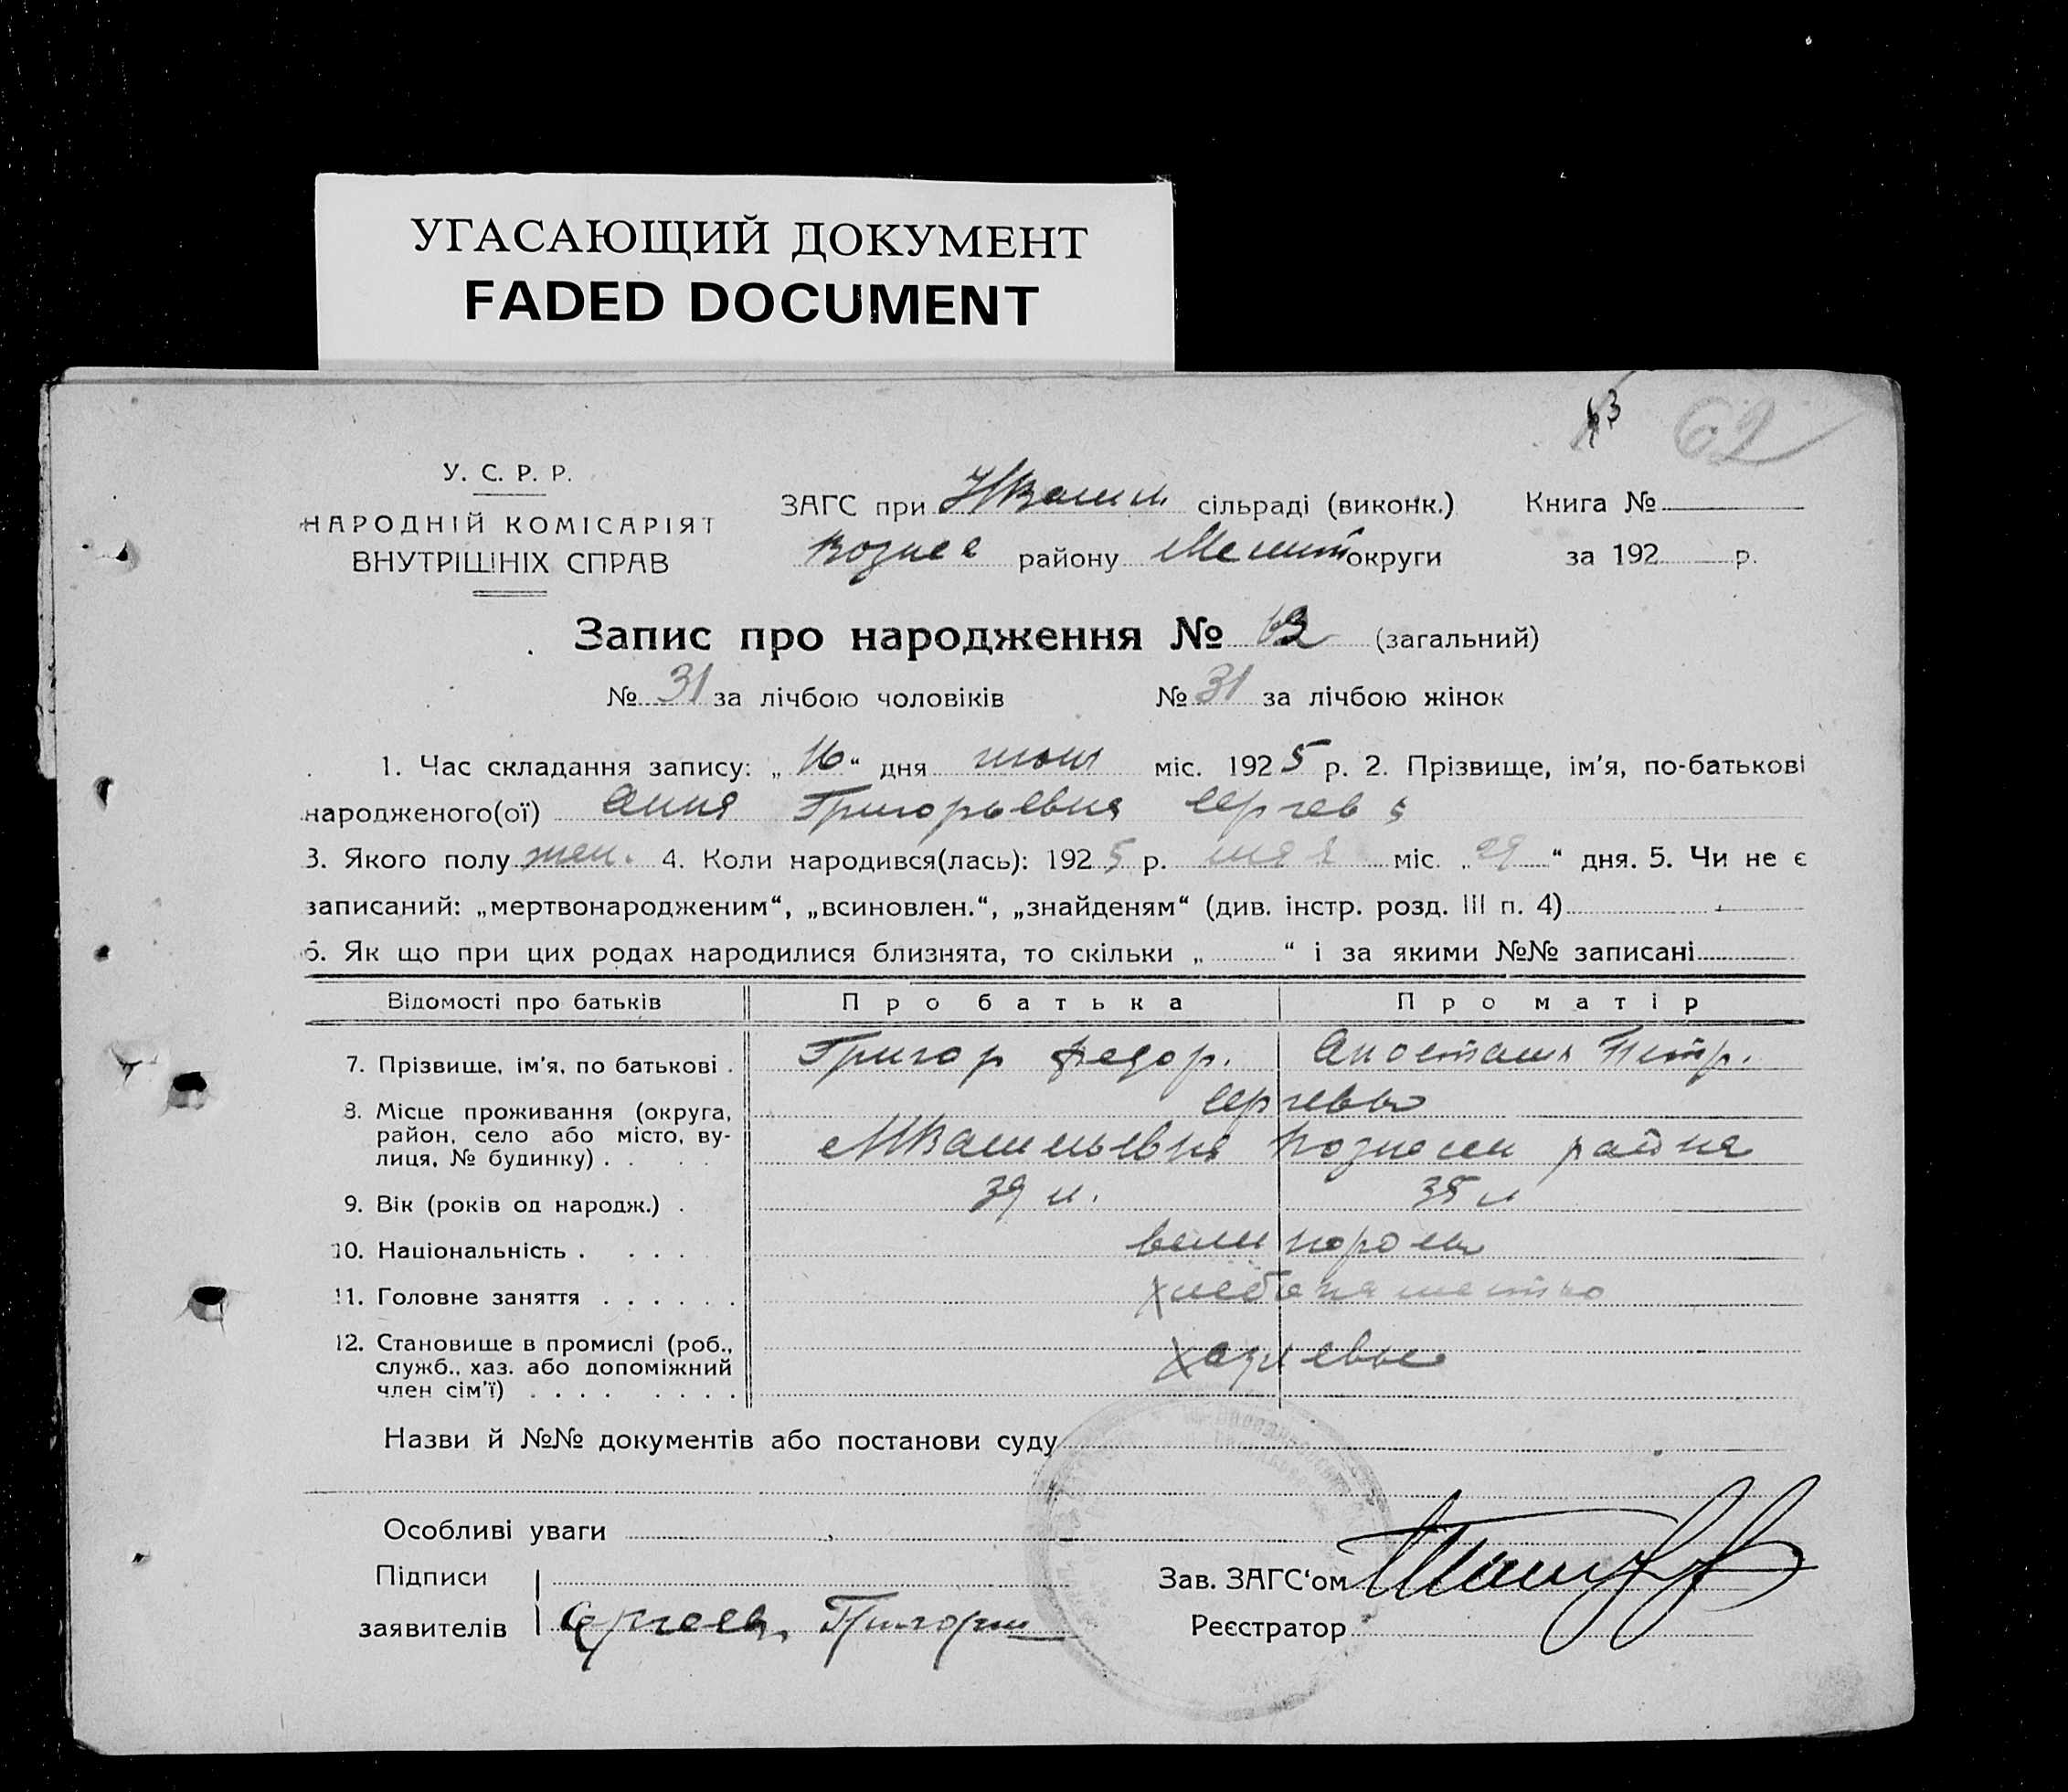 УГАСАЮЩИЙ ДОКУМЕНТ
FADED DOCUMENT
62
У. С. Р. Р.
НАРОДНІЙ КОМІСАРІЯТ
ВНУТРІШНІХ СПРАВ
ЗАГС при сільраді (виконк.)
району округи
Книга №
за 192 р.
Запис про народження № (загальний)
№ 31 за лічбою чоловіків № 31 за лічбою жінок
1. Час складання запису: „16“ дня июня міс. 1925 р. 2. Прізвище, ім’я, по-батькові
народженого(ої) Анна Григорьевна Сергеева
3. Якого полу жен. 4. Коли народився(лась): 1925 р. мая міс. „29“ дня. 5. Чи не є
записаний: „мертвонародженим“, „всиновлен.“, „знайденям“ (див. інстр. розд. III п. 4)
6. Як що при цих родах народилися близнята, то скільки „ “ і за якими №№ записані
Відомості про батьків Про батька Про матір
7. Прізвище, ім’я, по батькові . Григор Федор. Петр.
Сергеевы
8. Місце проживання (округа,
район, село або місто, ву-
лиця, № будинку) . . района
9. Вік (років од народж.) . 39 л. 35 л
10. Національність . . . . великороссы
11. Головне заняття . . . . . . хлебопашество
12. Становище в промислі (роб.,
служб., хаз. або допоміжний
член сім’ї) . . . . . . . . хозяевы
Назви й №№ документів або постанови суду
Особливі уваги
Підписи
заявителів Сергеев Григорий
Зав. ЗАГС‘ом
Реєстратор